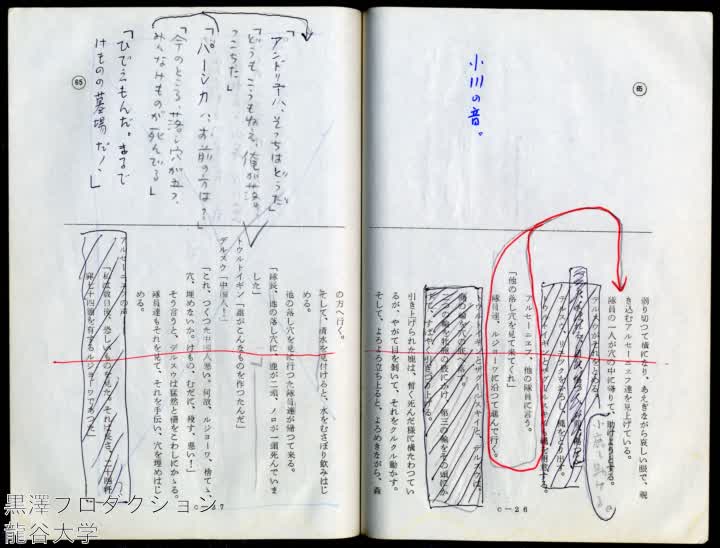 小川の音。
弱り切つて横になり、あえぎながら哀しい眼で、覗
き込むアルセーニエフ達を見上げている。
隊員の一人が穴の中に降りて、助けようとする。
アルセーニエフ、他の隊員に言う。
「他の落し穴を見て来てくれ」
隊員達、ルジョーワに沿つて進んで行く。
引き上げられた鹿は、暫く死んだ様に横たわつてい
るが、やがて目を剝いて、それをクルクル動かす。
そして、よろよろ立ち上ると、よろめきながら、森
C-26
65
「アンドリエハ、そっちはどうだ」
「どうもこうもねえ、俺が落っ
こちた」
「パーシカハ、お前の方は?」
「今のところ、落し穴が五つ、
みんなけものが死んでる」
「ひでえもんだ。まるで
けものの墓場だ!」
の方へ行く。
そして、清水を見付けると、水をむさぼり飲みはじ
める。
他の落し穴を見に行つた隊員達が帰つて来る。
「隊長、他の落し穴に、鹿が二頭、ノロが一頭死んでいま
した」
トウルトイギン「誰がこんなものを作つたんだ」
デルスウ「中国人!」
「これ、つくつた中国人悪い。何故、ルジョーワ、捨てゝ
穴、埋めないか。けもの、むだに、殺す、悪い!」
そう言うと、デルスウは猛然と柵をこわしにかゝる。
隊員達もそれを見て、それを手伝い、穴を埋めはじ
める。
アルセーニエフの声
黒澤プロダクション
龍谷大学